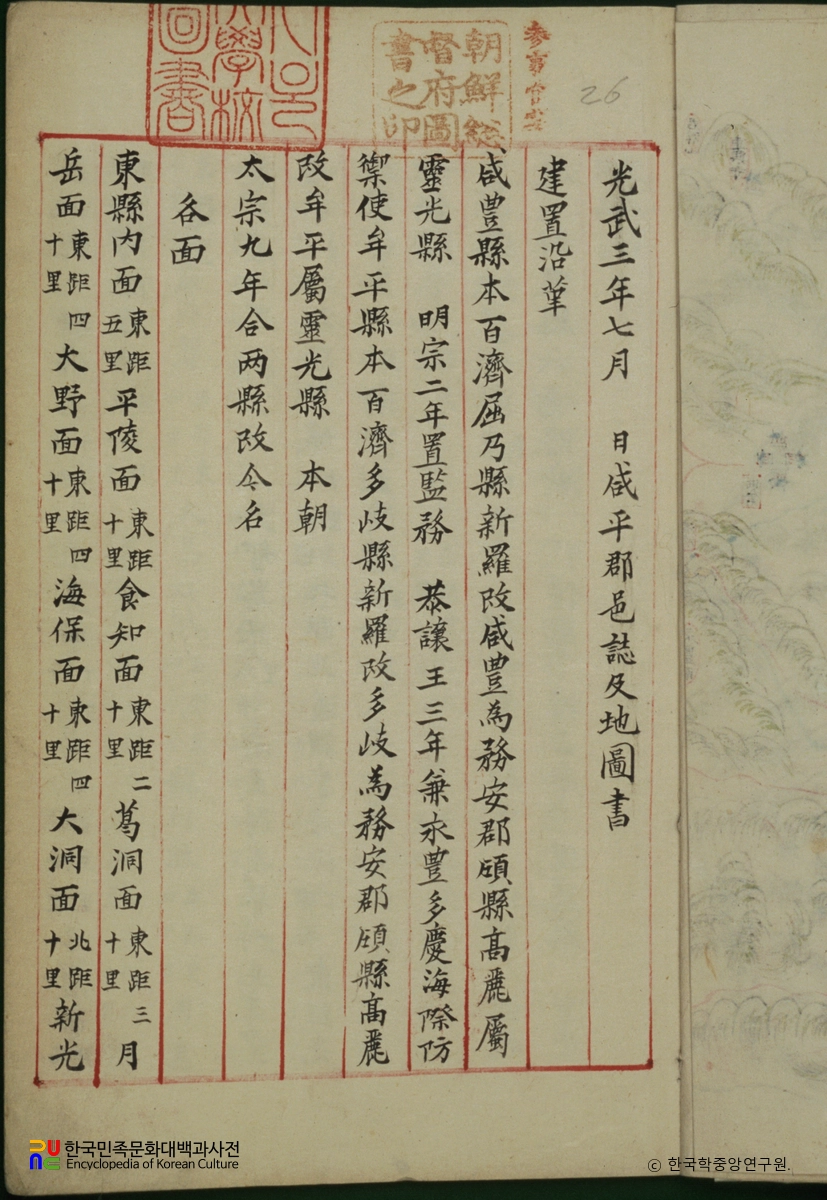 參事官室
26
朝鮮総
督府圖
書之印
學校
圖書
光武三年七月 日咸平郡邑誌及地圖書
建置沿革
咸豊縣本百濟屈乃縣新羅改咸豊為務安郡領縣高麗屬
靈光縣 明宗二年置監務 恭讓王三年兼永豊多慶海際防
禦使牟平縣本百濟多岐縣新羅改多岐為務安郡領縣高麗
改牟平屬靈光縣 本朝
太宗九年合両縣改今名
各面
東縣內面東距五里平陵面東距十里食知面東距二十里葛洞面東距三十里月
岳面東距四十里大野面東距四十里海保面東距四十里大洞面北距十里新光
한국민족문화대백과사전
Encyclopedia of Korean Culture
© 한국학중앙연구원.